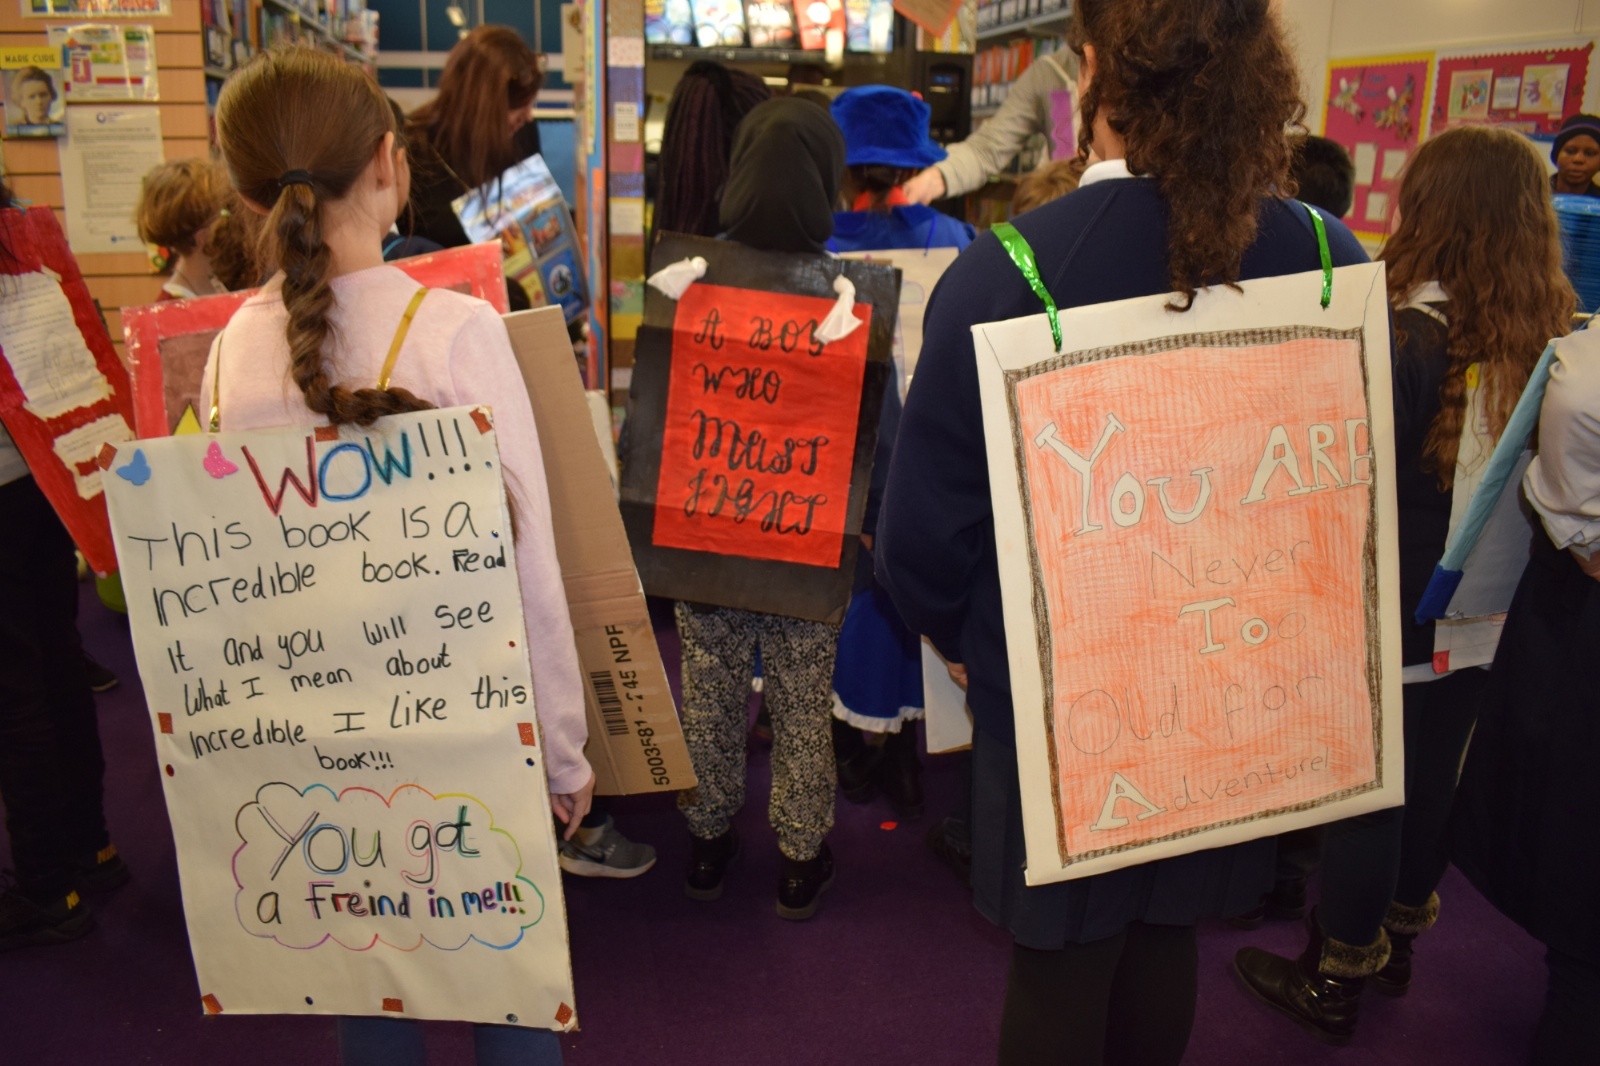 MARIE CURIE
WOW!!!
This book is a
Incredible book. Read
It and you will see
What I mean about
Incredible I Like this
book!!!
You got
a Freind in me!!!
5003581 - 245 NPF
A BOY
WHO
MUST
FIGHT
You ARE
Never
Too
Old for
Adventure!